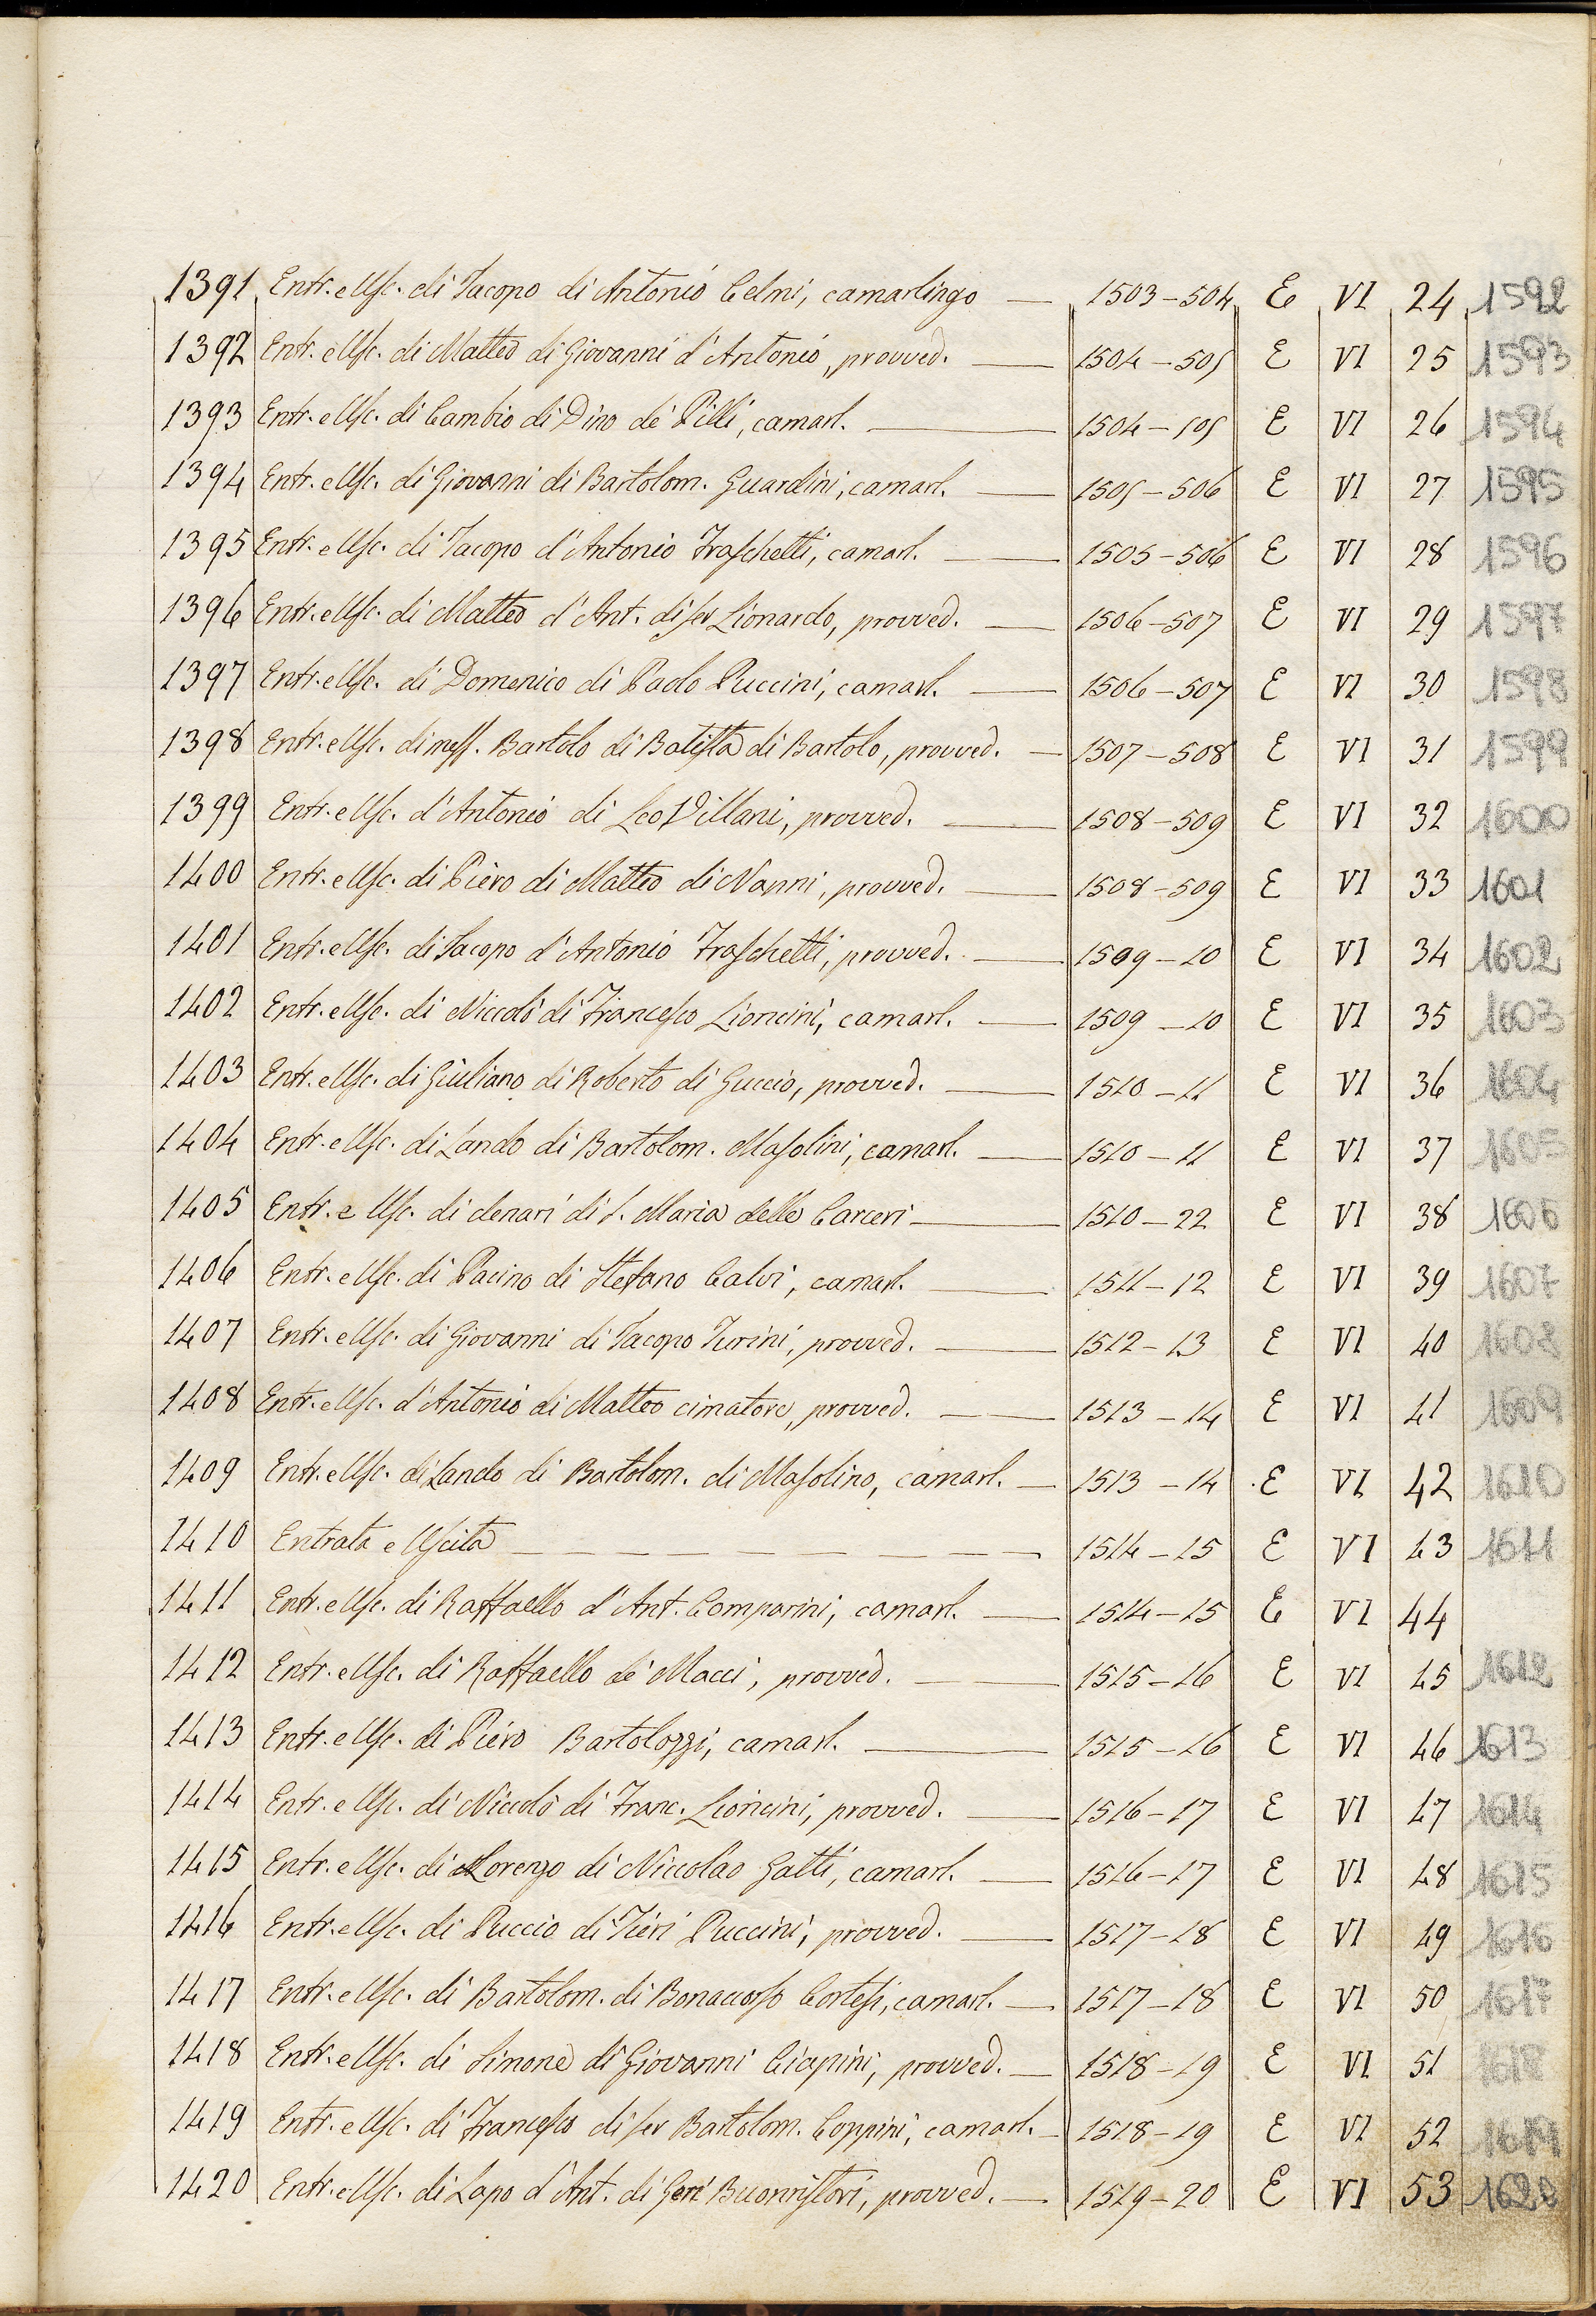 1391 Entr. e Usc. di Jacopo di Antonio Celmi, camarlingo — 1503-504 E VI 24 1592
1392 Entr. e Usc. di Matteo di Giovanni d'Antonio, provved. — 1504-505 E VI 25 1593
1393 Entr. e Usc. di Cambio di Dino de' Pilli, camarl. — 1504-505 E VI 26 1594
1394 Entr. e Usc. di Giovanni di Bartolom. Guardini, camarl. — 1505-506 E VI 27 1595
1395 Entr. e Usc. di Jacopo d'Antonio Fraschetti, camarl. — 1505-506 E VI 28 1596
1396 Entr. e Usc. di Matteo d'Ant. di ser Lionardo, provved. — 1506-507 E VI 29 1597
1397 Entr. e Usc. di Domenico di Paolo Puccini, camarl. — 1506-507 E VI 30 1598
1398 Entr. e Usc. di mess. Bartolo di Batista di Bartolo, provved. — 1507-508 E VI 31 1599
1399 Entr. e Usc. d'Antonio di Leo Villani, provved. — 1508-509 E VI 32 1600
1400 Entr. e Usc. di Piero di Matteo di Nanni, provved. — 1508-509 E VI 33 1601
1401 Entr. e Usc. di Jacopo d'Antonio Fraschetti, provved. — 1509-10 E VI 34 1602
1402 Entr. e Usc. di Niccolò di Francesco Lioncini, camarl. — 1509-10 E VI 35 1603
1403 Entr. e Usc. di Giuliano di Roberto di Guccio, provved. — 1510-11 E VI 36 1604
1404 Entr. e Usc. di Lando di Bartolom. Masolini, camarl. — 1510-11 E VI 37 1605
1405 Entr. e Usc. di denari di S. Maria delle Carceri — 1510-22 E VI 38 1606
1406 Entr. e Usc. di Pacino di Stefano Calvi, camarl. — 1511-12 E VI 39 1607
1407 Entr. e Usc. di Giovanni di Jacopo Turini, provved. — 1512-13 E VI 40 1608
1408 Entr. e Usc. d'Antonio di Matteo cimatore, provved. — 1513-14 E VI 41 1609
1409 Entr. e Usc. di Lando di Bartolom. di Masolino, camarl. — 1513-14 E VI 42 1610
1410 Entrata e Uscita — 1514-15 E VI 43 1611
1411 Entr. e Usc. di Raffaello d'Ant. Comparini, camarl. — 1514-15 E VI 44
1412 Entr. e Usc. di Raffaello de' Macci, provved. — 1515-16 E VI 45 1612
1413 Entr. e Usc. di Piero Bartolozzi, camarl. — 1515-16 E VI 46 1613
1414 Entr. e Usc. di Niccolò di Franc. Lioncini, provved. — 1516-17 E VI 47 1614
1415 Entr. e Usc. di Lorenzo di Niccolao Gatti, camarl. — 1516-17 E VI 48 1615
1416 Entr. e Usc. di Puccio di Tieri Puccini, provved. — 1517-18 E VI 49 1616
1417 Entr. e Usc. di Bartolom. di Bonaccorso Cortesi, camarl. — 1517-18 E VI 50 1617
1418 Entr. e Usc. di Simone di Giovanni Ciapini, provved. — 1518-19 E VI 51 1618
1419 Entr. e Usc. di Francesco di ser Bartolom. Coppini, camarl. — 1518-19 E VI 52 1619
1420 Entr. e Usc. di Lapo d'Ant. di Geri Buonristori, provved. — 1519-20 E VI 53 1620